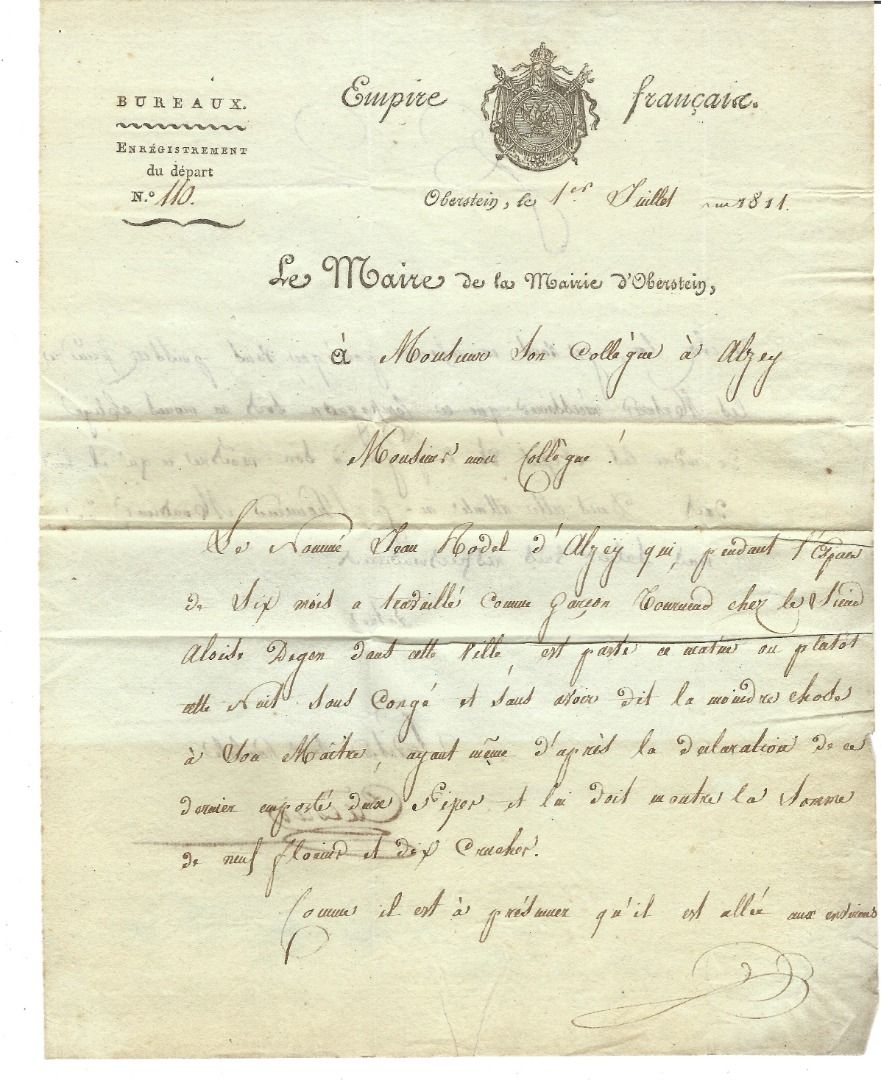 BUREAUX.
ENRÉGISTREMENT
du départ
N.º 110.
Empire français.
Oberstein, le 1er Juillet 1811.
Le Maire de la Mairie d'Oberstein,
à Monsieur Son Collègue à Alzey
Monsieur mon Collègue!
Le Nommé Jean Rodel d'Alzey qui, pendant l'Espace
de Six mois a travaillé comme garçon Tourneur chez le Sieur
Aloise Degen dans cette Ville, est parti ce matin ou plutôt
cette Nuit sans Congé et sans avoir dit la moindre chose
à Son Maître, ayant même d'après la declaration de ce
dernier emporté deux et lui doit la Somme
de neuf florins et dix Cracher.
Comme il est à présumer qu'il est allée aux environs